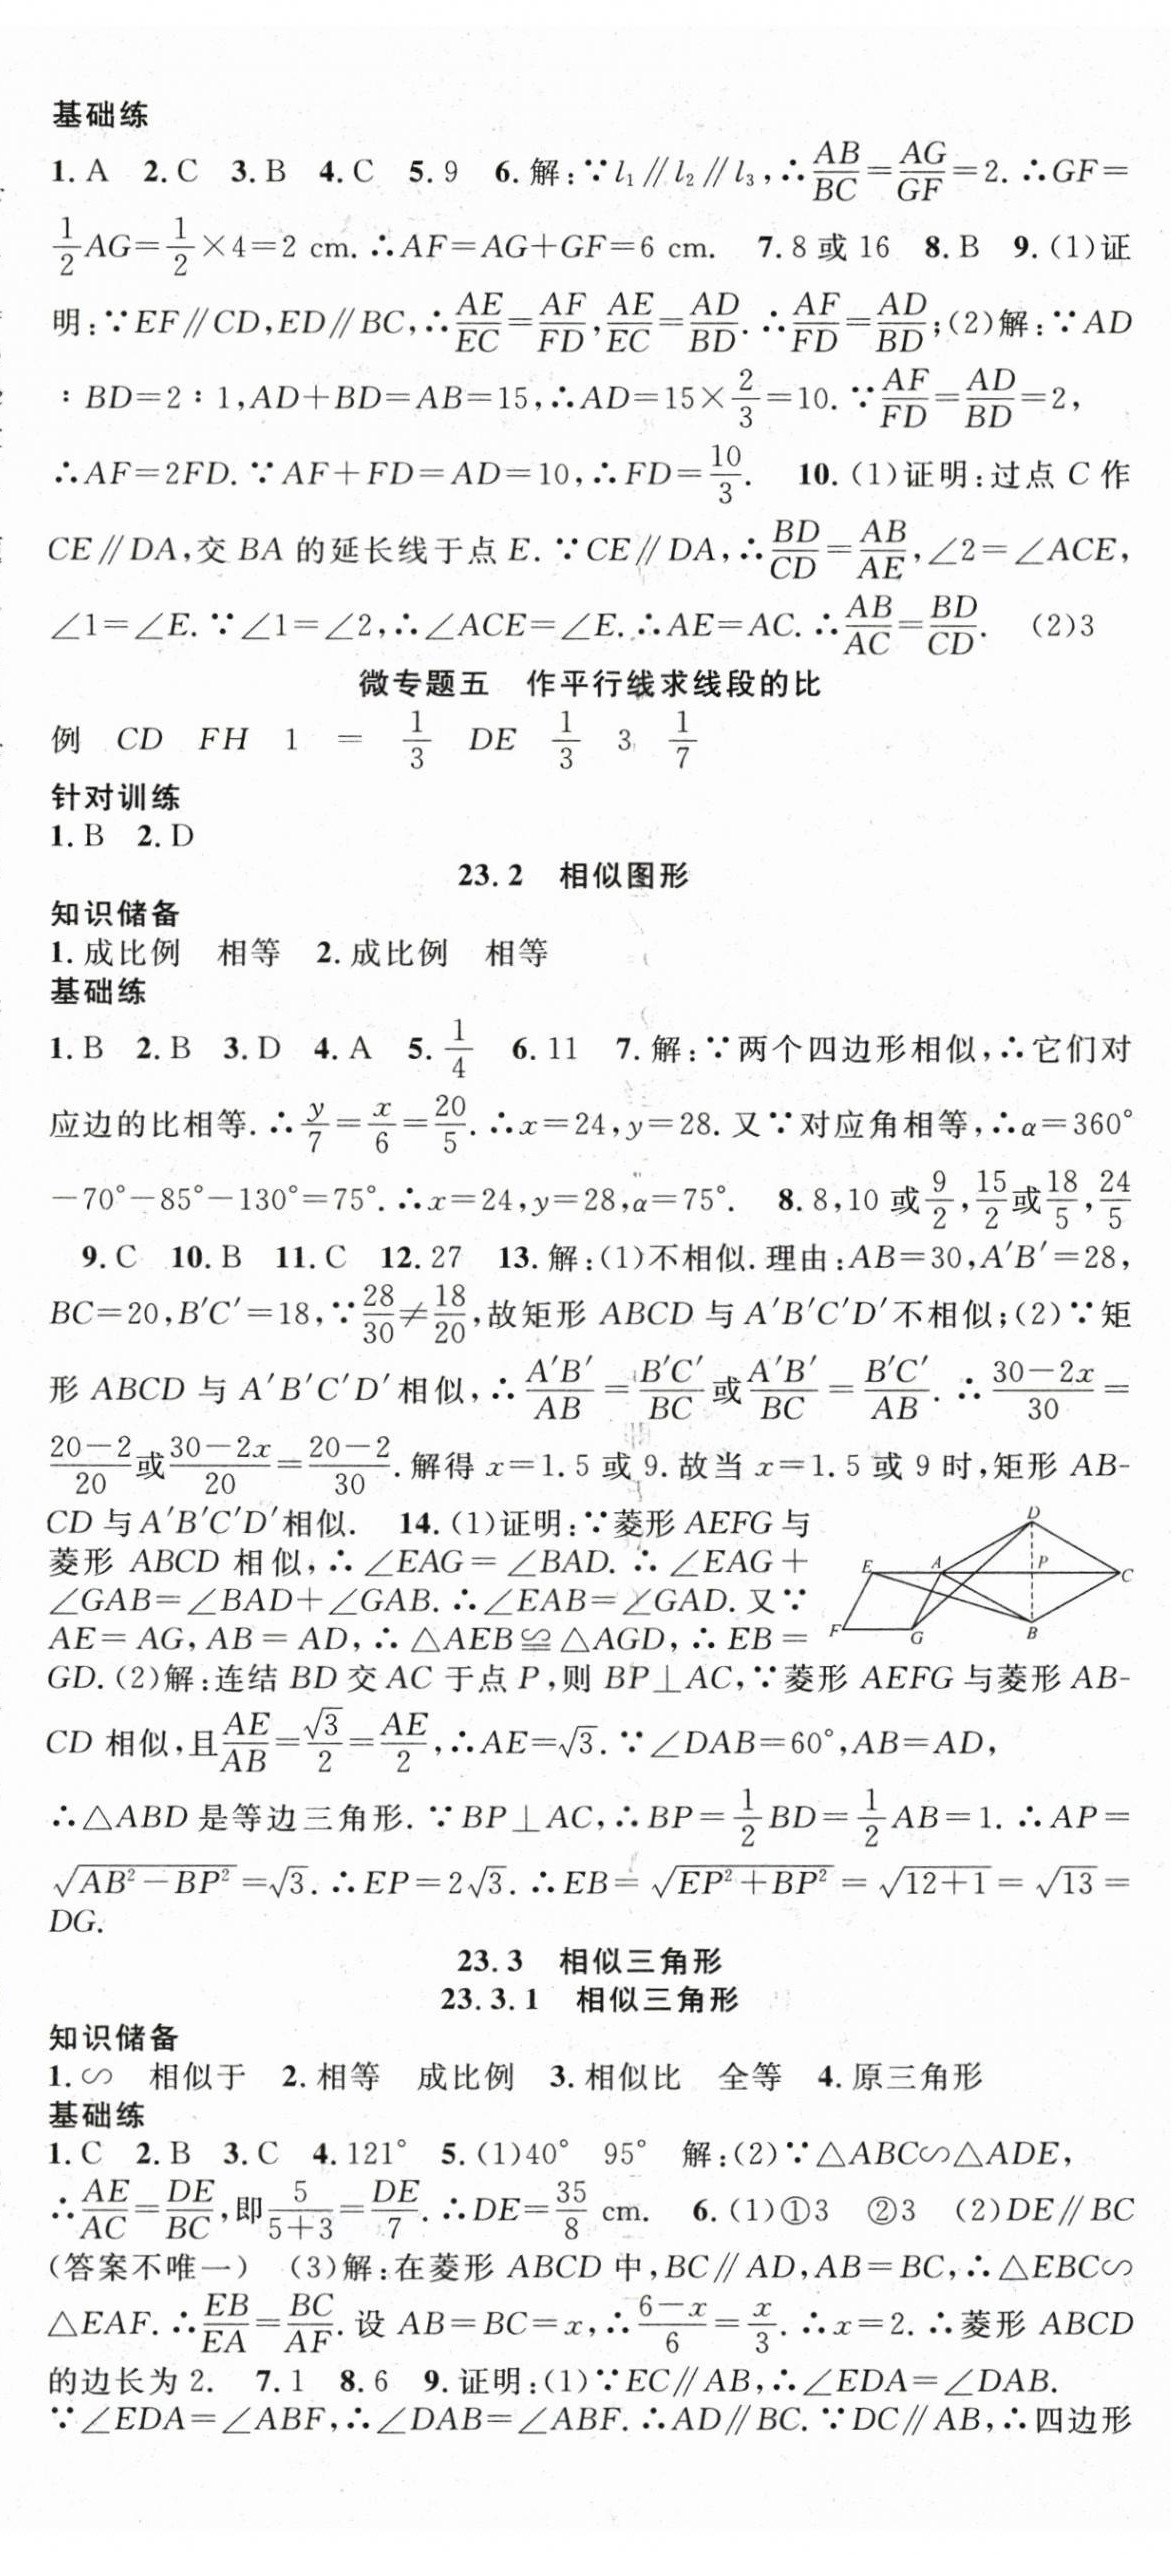 基础练
1. A 2. C 3. B 4. C 5. 9 6. 解:∵l₁∥l₂∥l₃,∴AB/BC=AG/GF=2. ∴GF=
1/2AG=1/2×4=2 cm. ∴AF=AG+GF=6 cm. 7. 8或16 8. B 9. (1)证
明:∵EF∥CD,ED∥BC,∴AE/EC=AF/FD,AE/EC=AD/BD. ∴AF/FD=AD/BD;(2)解:∵AD
:BD=2:1,AD+BD=AB=15,∴AD=15×2/3=10. ∵AF/FD=AD/BD=2,
∴AF=2FD. ∵AF+FD=AD=10,∴FD=10/3. 10. (1)证明:过点C作
CE∥DA,交BA的延长线于点E. ∵CE∥DA,∴BD/CD=AB/AE,∠2=∠ACE,
∠1=∠E. ∵∠1=∠2,∴∠ACE=∠E. ∴AE=AC. ∴AB/AC=BD/CD. (2)3
微专题五 作平行线求线段的比
例 CD FH 1 = 1/3 DE 1/3 3 1/7
针对训练
1. B 2. D
23.2 相似图形
知识储备
1. 成比例 相等 2. 成比例 相等
基础练
1. B 2. B 3. D 4. A 5. 1/4 6. 11 7. 解:∵两个四边形相似,∴它们对
应边的比相等. ∴y/7=x/6=20/5. ∴x=24,y=28. 又∵对应角相等,∴α=360°
-70°-85°-130°=75°. ∴x=24,y=28,α=75°. 8. 8,10或9/2,15/2或18/5,24/5
9. C 10. B 11. C 12. 27 13. 解:(1)不相似. 理由:AB=30,A′B′=28,
BC=20,B′C′=18,∵28/30≠18/20,故矩形ABCD与A′B′C′D′不相似;(2)∵矩
形ABCD与A′B′C′D′相似,∴A′B′/AB=B′C′/BC或A′B′/BC=B′C′/AB. ∴(30-2x)/30=
(20-2)/20或(30-2x)/20=(20-2)/30. 解得x=1.5或9. 故当x=1.5或9时,矩形AB-
CD与A′B′C′D′相似. 14. (1)证明:∵菱形AEFG与
菱形ABCD相似,∴∠EAG=∠BAD. ∴∠EAG+
∠GAB=∠BAD+∠GAB. ∴∠EAB=∠GAD. 又∵
AE=AG,AB=AD,∴△AEB≌△AGD,∴EB=
D
E A P C
F G B
GD. (2)解:连结BD交AC于点P,则BP⊥AC,∵菱形AEFG与菱形AB-
CD相似,且AE/AB=√3/2=AE/2,∴AE=√3. ∵∠DAB=60°,AB=AD,
∴△ABD是等边三角形. ∵BP⊥AC,∴BP=1/2BD=1/2AB=1. ∴AP=
√(AB²-BP²)=√3. ∴EP=2√3. ∴EB=√(EP²+BP²)=√(12+1)=√13=
DG.
23.3 相似三角形
23.3.1 相似三角形
知识储备
1. ∽ 相似于 2. 相等 成比例 3. 相似比 全等 4. 原三角形
基础练
1. C 2. B 3. C 4. 121° 5. (1)40° 95° 解:(2)∵△ABC∽△ADE,
∴AE/AC=DE/BC,即5/(5+3)=DE/7. ∴DE=35/8 cm. 6. (1)①3 ②3 (2)DE∥BC
(答案不唯一) (3)解:在菱形ABCD中,BC∥AD,AB=BC,∴△EBC∽
△EAF. ∴EB/EA=BC/AF. 设AB=BC=x,∴(6-x)/6=x/3. ∴x=2. ∴菱形ABCD
的边长为2. 7. 1 8. 6 9. 证明:(1)∵EC∥AB,∴∠EDA=∠DAB.
∵∠EDA=∠ABF,∴∠DAB=∠ABF. ∴AD∥BC. ∵DC∥AB,∴四边形